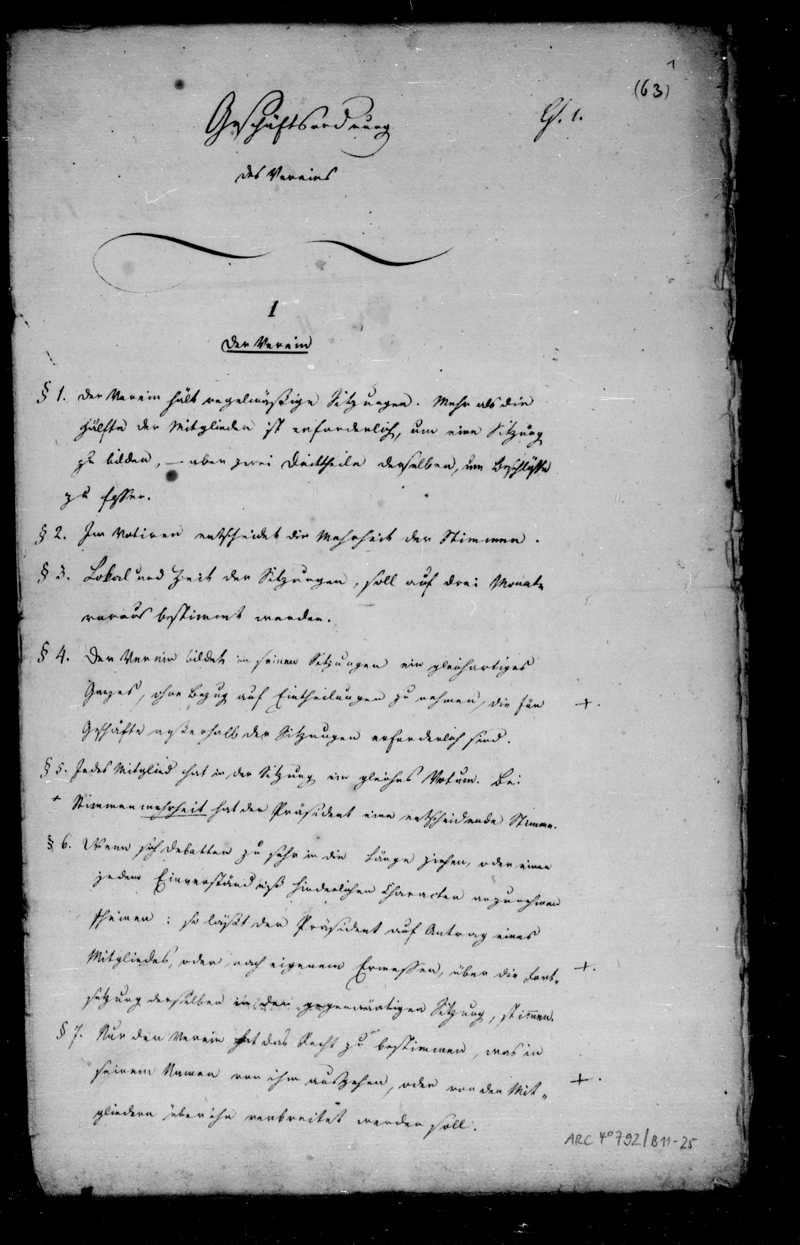 1
(63)
Geschäftsordnung
des Vereins
I
Der Verein
§ 1. Der Verein hält regelmäßige Sitzungen. Mehr als die
Hälfte der Mitglieder ist erforderlich, um eine Sitzung
zu bilden, — aber zwei Drittheile derselben, um Beschlüsse
zu fassen.
§ 2. Im Votiren entscheidet die Mehrheit der Stimmen.
§ 3. Lokal und Zeit der Sitzungen, soll auf drei Monate
voraus bestimmt werden.
§ 4. Der Verein bildet in seinen Sitzungen ein gleichartiges
Ganzes, ohne Bezug auf Eintheilungen zu nehmen, die für +.
Geschäfte außerhalb der Sitzungen erforderlich sind.
§ 5. Jedes Mitglied hat in der Sitzung ein gleiches Votum. Bei
+ Stimmenmehrheit hat der Präsident eine entscheidende Stimme.
§ 6. Wenn sich Debatten zu sehr in die Länge ziehen, oder einen
jedem Einverständniß hinderlichen Character anzunehmen
scheinen: so läßt der Präsident auf Antrag eines
Mitgliedes, oder nach eigenem Ermessen, über die Fort- +.
setzung derselben in der gegenwärtigen Sitzung, stimmen.
§ 7. Nur der Verein hat das Recht zu bestimmen, was in
seinem Namen von ihm ausgehen, oder von den Mit- +.
gliedern über ihn verbreitet werden soll.
ARC 4° 792/B11-25